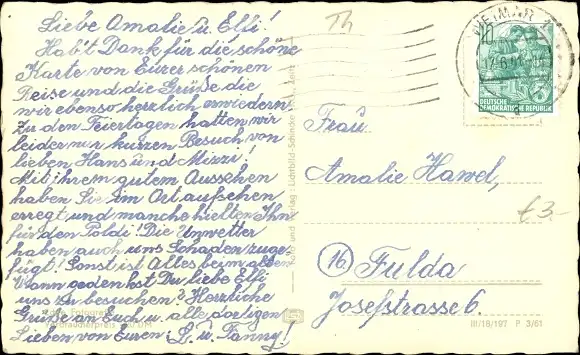 Liebe Amalie u. Elli!
Hab't Dank für die schöne
Karte von Eurer schönen
Reise und die Grüße die
wir ebenso herzlich erwiedern.
Zu den Feiertagen hatten wir
leider nur kurzen Besuch von
lieben Hans und Mizzi!
Mit ihrem gutem Aussehen
haben Sie im Ort aufsehen
erregt und manche hielten Ihn
für den Poldi! Die Unwetter
haben auch uns Schaden zuge-
fügt! Sonst ist Alles beim alten.
Wann gedenkst Du liebe Elli
uns zu besuchen? Herzliche
Grüße an Euch u. alle dortigen
Lieben von Euren: L. u. Fanny!
Th
WEIMAR
10
DEUTSCHE
DEMOKRATISCHE REPUBLIK
Frau
Amalie Hawel,
€3-
16 Fulda
Josefstrasse 6.
III/18/197 P 3/61